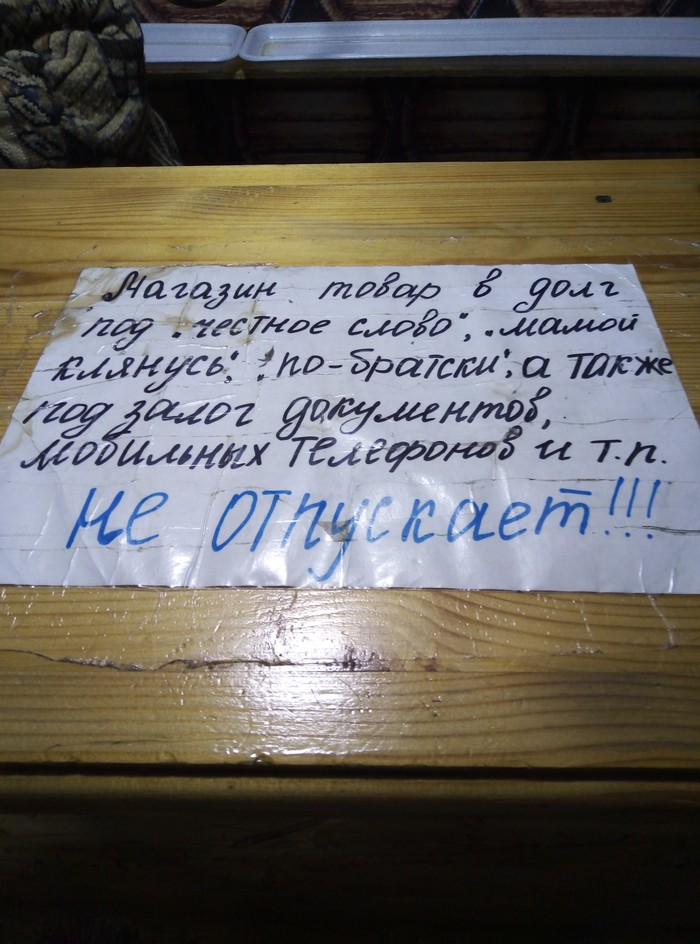 Магазин товар в долг
под "честное слово", "мамой
клянусь", "по-братски", а также
под залог документов,
мобильных телефонов и т.п.
не отпускает!!!